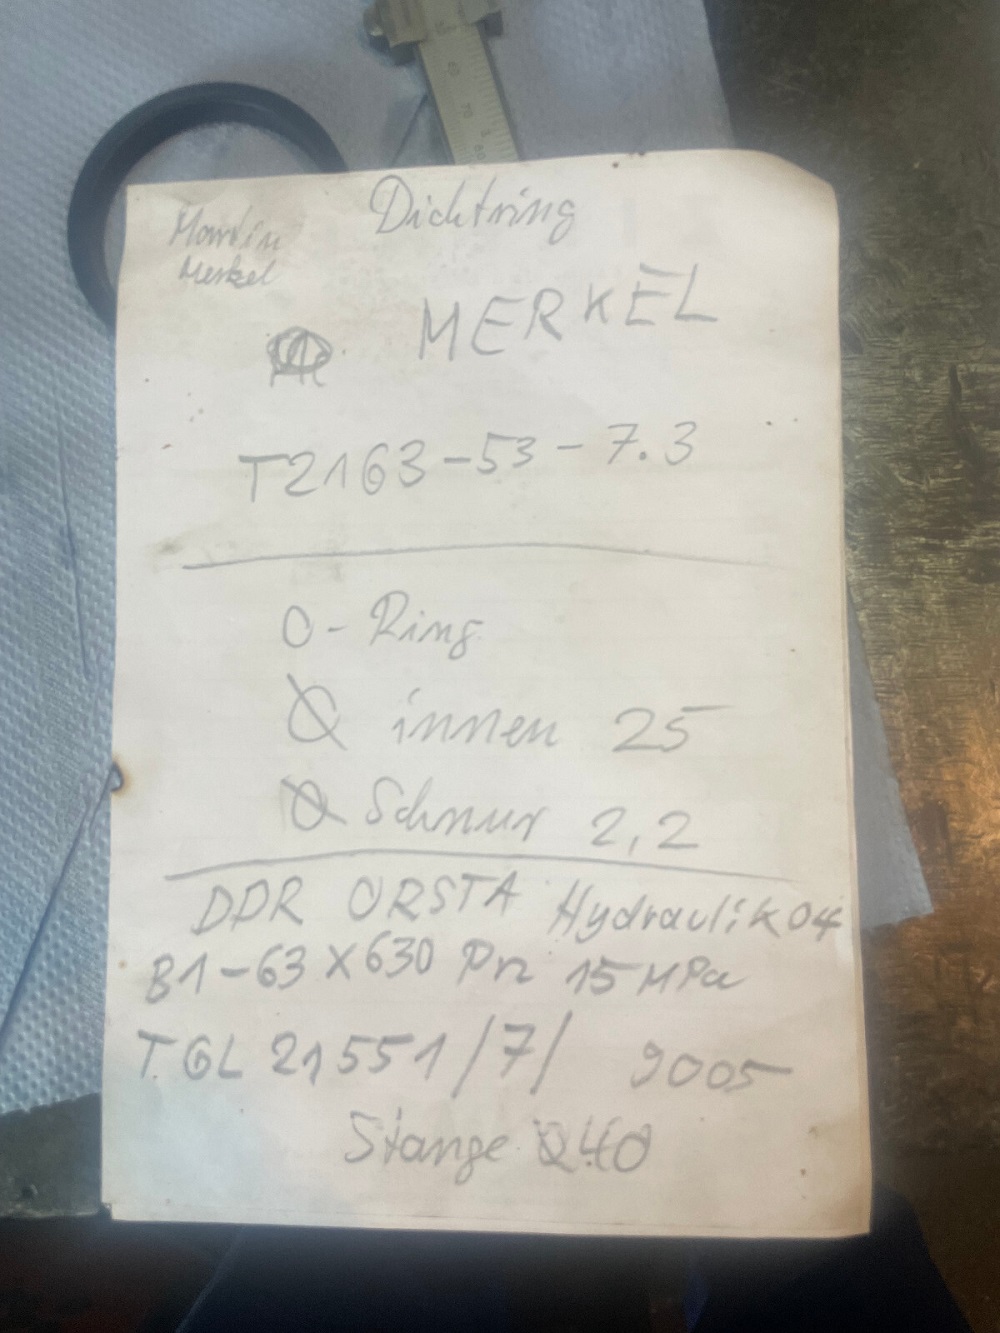 Dichtring
Martin
Merkel
MERKEL
T2163-53-7.3
O-Ring
Ø innen 25
Ø Schnur 2,2
DDR ORSTA Hydraulik 04
B1-63x630 Pn 15 MPa
TGL 21551/7/ 9005
Stange Ø40
70